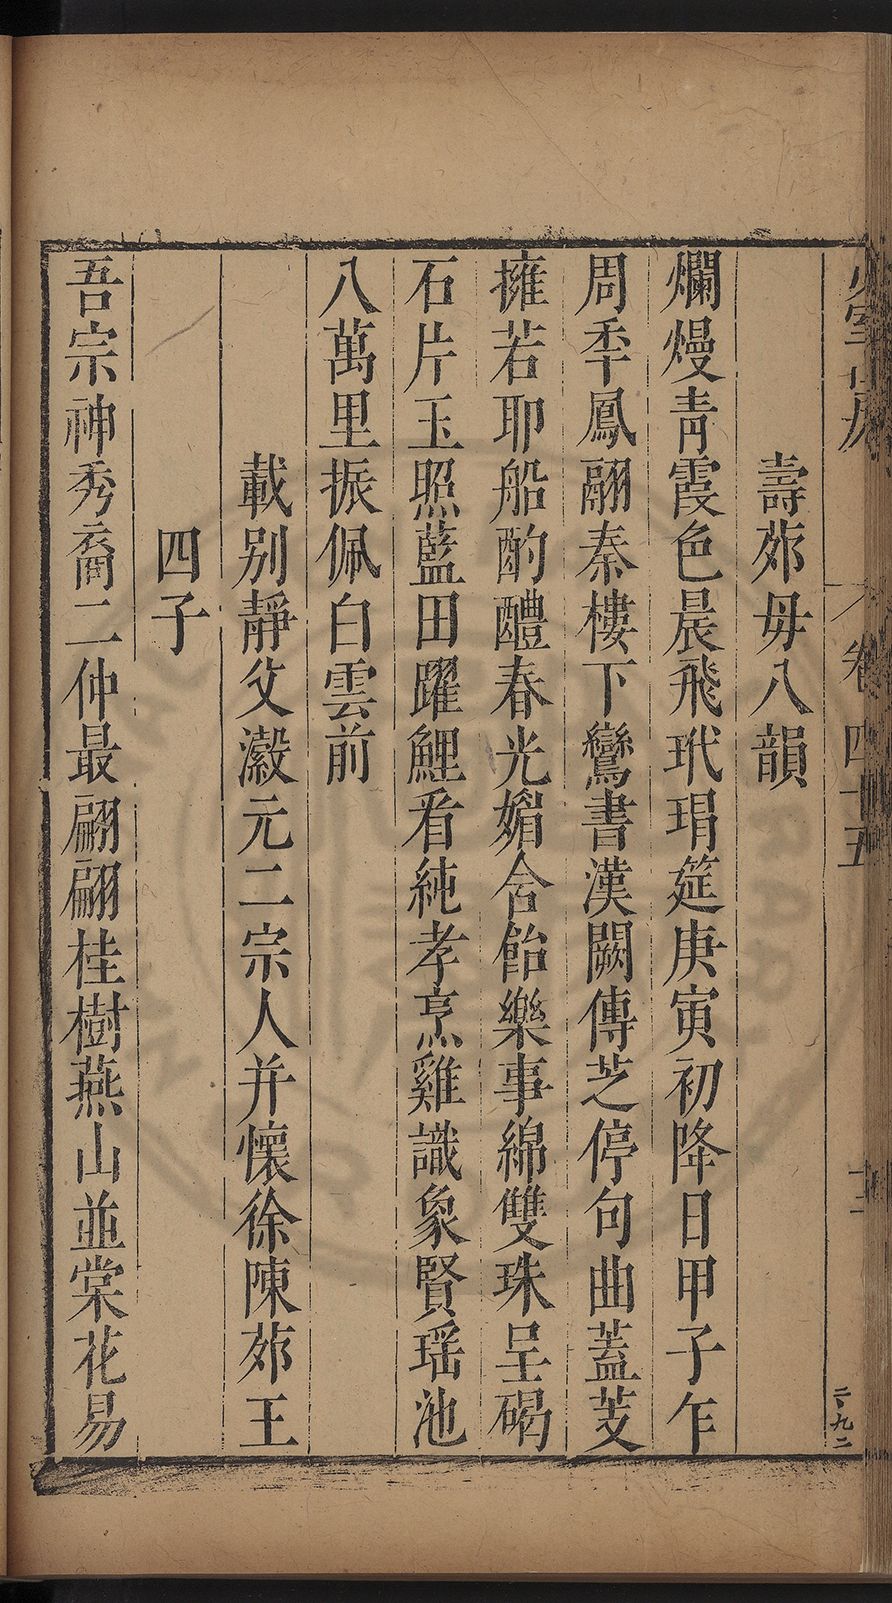 室山房
卷四十五
十二
二九二
壽茆母八韻
爛熳青霞色晨飛玳瑁筵庚寅初降日甲子乍
周秊鳳翮秦樓下鸞書漢闕傳芝停句曲蓋芰
擁若耶船酌醴春光媚含飴樂事綿雙珠呈碣
石片玉照藍田躍鯉看純孝烹雞識象賢瑤池
八萬里振佩白雲前
載別靜父瀫元二宗人并懷徐陳茆王
四子
吾宗神秀裔二仲最翩翩桂樹燕山並棠花易